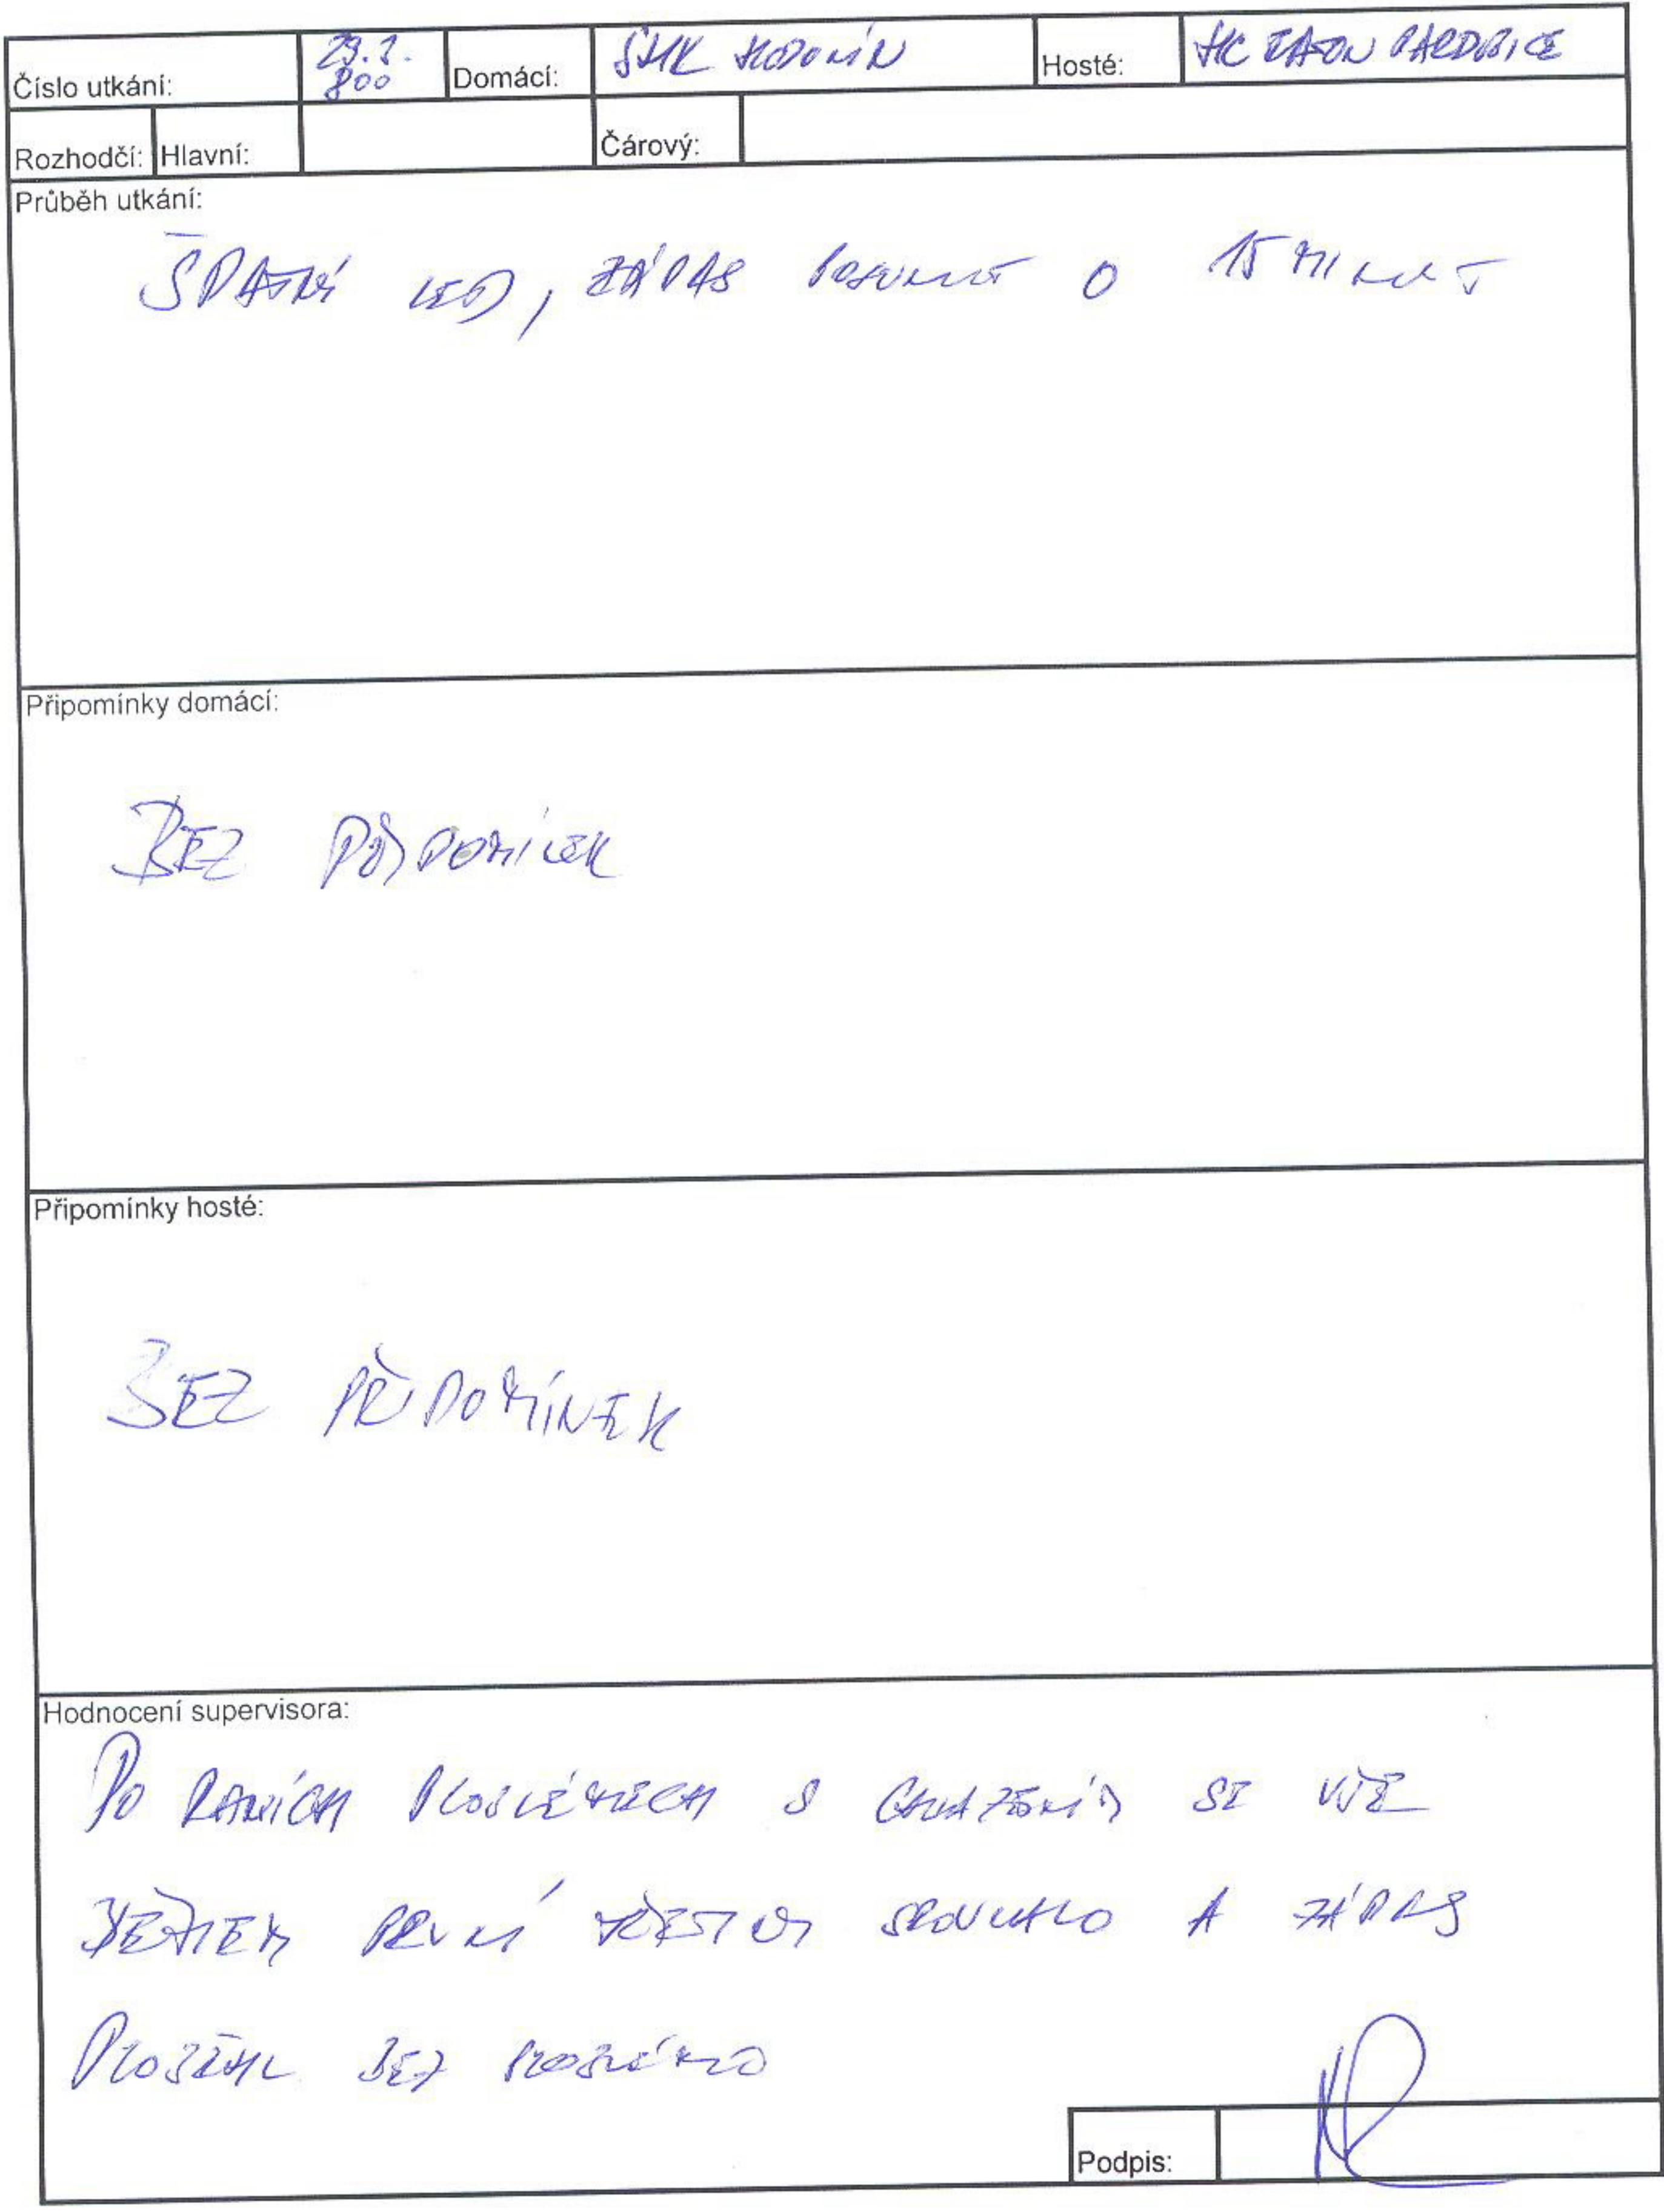 Číslo utkání: 29.3. 800 Domácí: SHK HODONÍN Hosté: HC EATON PARDUBICE
Rozhodčí: Hlavní: Čárový:
Průběh utkání:
ŠPATNÝ LED, ZÁPAS POSUNUT O 15 MINUT
Připomínky domácí:
BEZ PŘIPOMÍNEK
Připomínky hosté:
BEZ PŘIPOMÍNEK
Hodnocení supervisora:
PO RANÍCH PROBLÉMECH S CHLAZENÍM SE VŠE
BĚHEM PRVNÍ TŘETINY SROVNALO A ZÁPAS
PROBĚHL BEZ PROBLÉMŮ
Podpis: